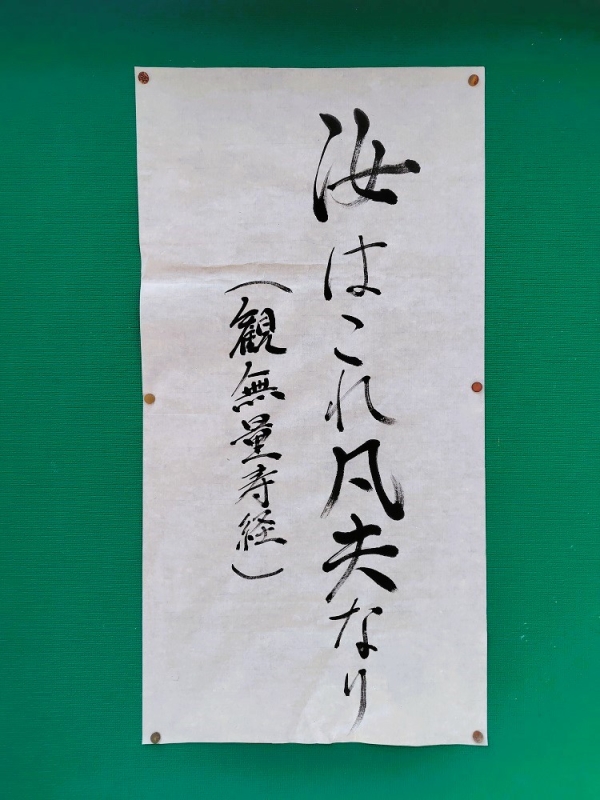 汝はこれ凡夫なり
（観無量寿経）